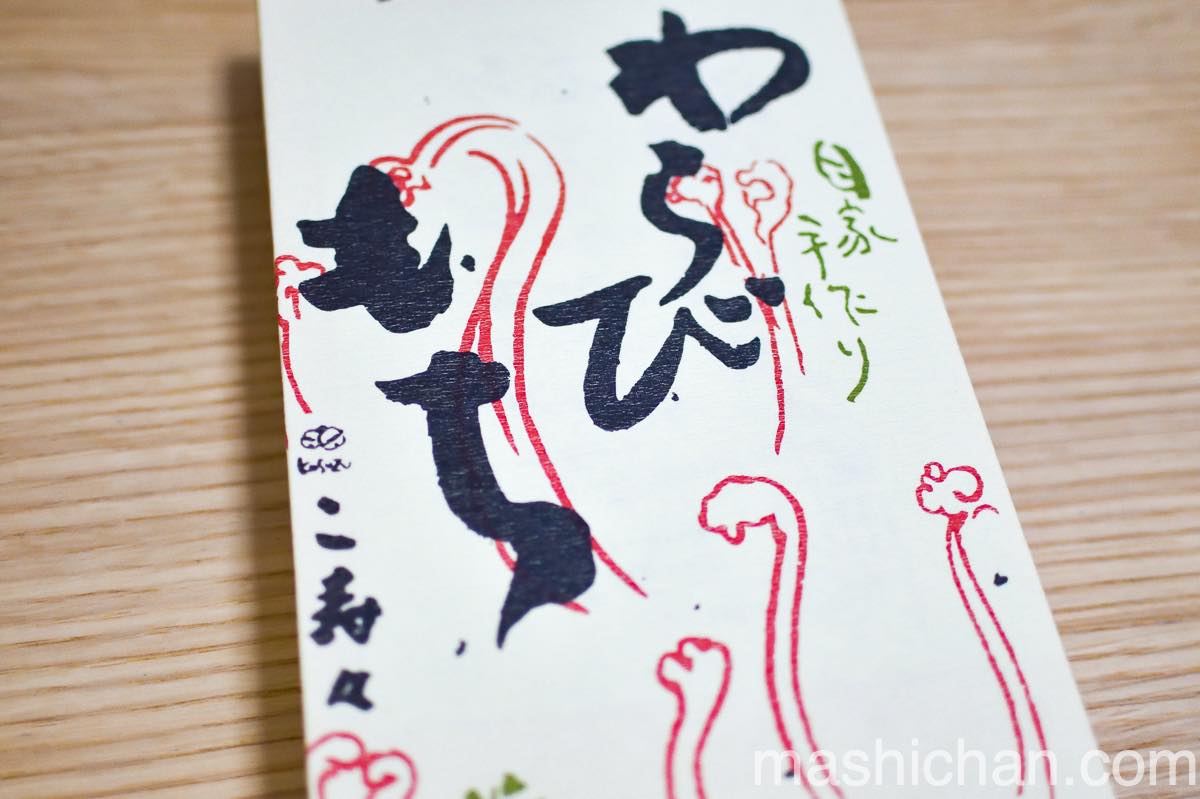 自家
手作り
わらび
もち
kosuzu
こ寿々
mashichan.com